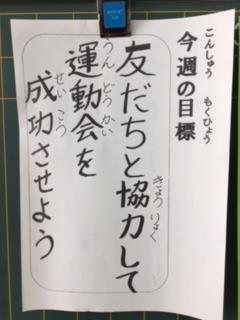 こんしゅう もくひょう
今週の目標
友だちと協力して
きょうりょく
運動会を
うんどうかい
成功させよう
せいこう